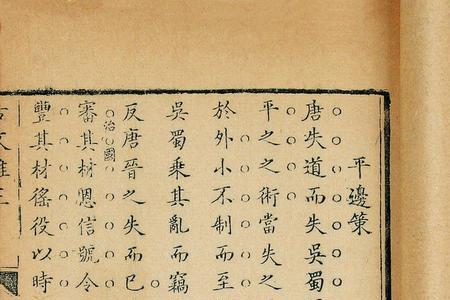 平邊策
唐失道而失吳蜀
平之之術當失之
於外小不制而至
吳蜀乘其亂而竊
反唐晉之失而已
治國
審其材恩信號令
豐其材徭役以時